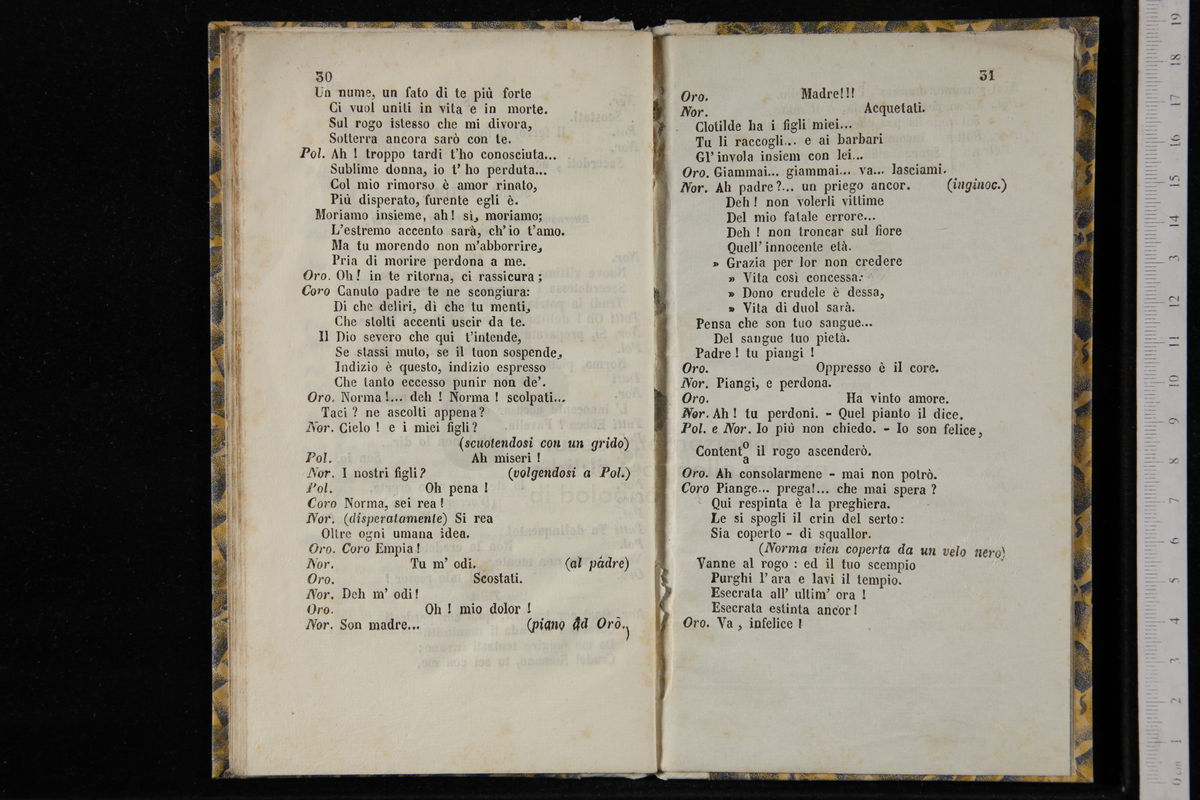 30
Un nume, un fato di te più forte
Ci vuol uniti in vita e in morte.
Sul rogo istesso che mi divora,
Sotterra ancora sarò con te.
Pol. Ah ! troppo tardi t'ho conosciuta...
Sublime donna, io t' ho perduta...
Col mio rimorso è amor rinato,
Più disperato, furente egli è.
Moriamo insieme, ah ! sì, moriamo;
L'estremo accento sarà, ch'io t'amo.
Ma tu morendo non m'abborrire,
Pria di morire perdona a me.
Oro. Oh ! in te ritorna, ci rassicura ;
Coro Canuto padre te ne scongiura:
Di che deliri, dì che tu menti,
Che stolti accenti uscir da te.
Il Dio severo che qui t'intende,
Se stassi muto, se il tuon sospende,
Indizio è questo, indizio espresso
Che tanto eccesso punir non de'.
Oro. Norma !... deh ! Norma ! scolpati...
Taci ? ne ascolti appena ?
Nor. Cielo ! e i miei figli ?
(scuotendosi con un grido)
Pol. Ah miseri !
Nor. I nostri figli ? (volgendosi a Pol.)
Pol. Oh pena !
Coro Norma, sei rea !
Nor. (disperatamente) Si rea
Oltre ogni umana idea.
Oro. Coro Empia !
Nor. Tu m' odi. (al padre)
Oro. Scostati.
Nor. Deh m' odi !
Oro. Oh ! mio dolor !
Nor. Son madre... (piano ad Oro.)
31
Oro. Madre!!!
Nor. Acquetati.
Clotilde ha i figli miei...
Tu li raccogli... e ai barbari
Gl' invola insiem con lei...
Oro. Giammai... giammai... va... lasciami.
Nor. Ah padre ?... un priego ancor. (inginoc.)
Deh ! non volerli vittime
Del mio fatale errore...
Deh ! non troncar sul fiore
Quell' innocente età.
» Grazia per lor non credere
» Vita così concessa:
» Dono crudele è dessa,
» Vita di duol sarà.
Pensa che son tuo sangue...
Del sangue tuo pietà.
Padre ! tu piangi !
Oro. Oppresso è il core.
Nor. Piangi, e perdona.
Oro. Ha vinto amore.
Nor. Ah ! tu perdoni. - Quel pianto il dice.
Pol. e Nor. Io più non chiedo. - Io son felice,
Content o a il rogo ascenderò.
Oro. Ah consolarmene - mai non potrò.
Coro Piange... prega!... che mai spera ?
Qui respinta è la preghiera.
Le si spogli il crin del serto :
Sia coperto - di squallor.
(Norma vien coperta da un velo nero)
Vanne al rogo : ed il tuo scempio
Purghi l' ara e lavi il tempio.
Esecrata all' ultim' ora !
Esecrata estinta ancor !
Oro. Va , infelice !